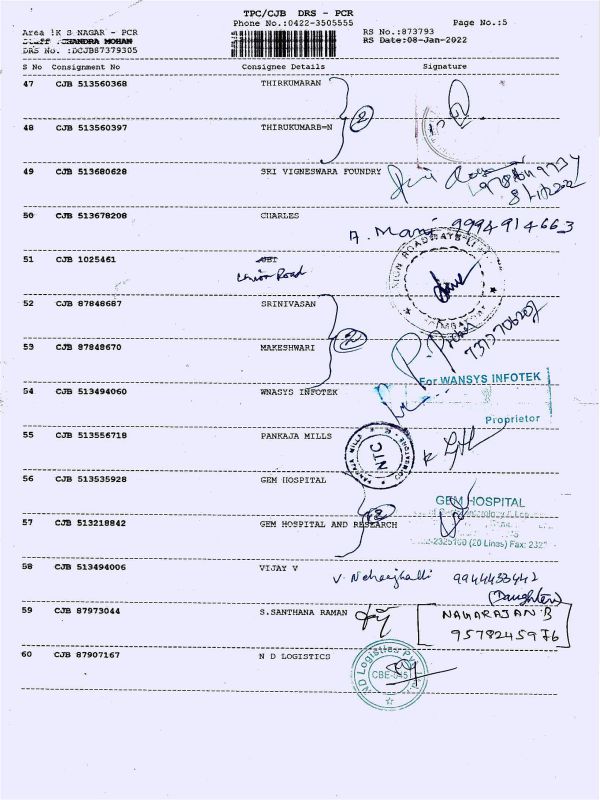 TPC/CJB DRS - PCR
Phone No.:0422-3505555 Page No.:5
Area :K S NAGAR - PCR RS No.:873793
Staff :CHANDRA MOHAN RS Date:08-Jan-2022
DRS No. :DCJB87379305
S No Consignment No Consignee Details Signature
47 CJB 513560368 THIRKUMARAN
2
48 CJB 513560397 THIRUKUMARB=N
49 CJB 513680628 SRI VIGNESWARA FOUNDRY
50 CJB 513678208 CHARLES
A. Mani 9994914663
51 CJB 1025461
Union Road
52 CJB 87848687 SRINIVASAN
2
53 CJB 87848670 MAKESHWARI
54 CJB 513494060 WNASYS INFOTEK
For WANSYS INFOTEK
Proprietor
55 CJB 513556718 PANKAJA MILLS
NTC
PANKAJA MILLS
56 CJB 513535928 GEM HOSPITAL
GEM HOSPITAL
57 CJB 513218842 GEM HOSPITAL AND RESEARCH
(20 Lines) Fax:
58 CJB 513494006 VIJAY V
9944433442
(Daughter)
59 CJB 87973044 S.SANTHANA RAMAN
NAGARAJAN.B
9578245976
60 CJB 87907167 N D LOGISTICS